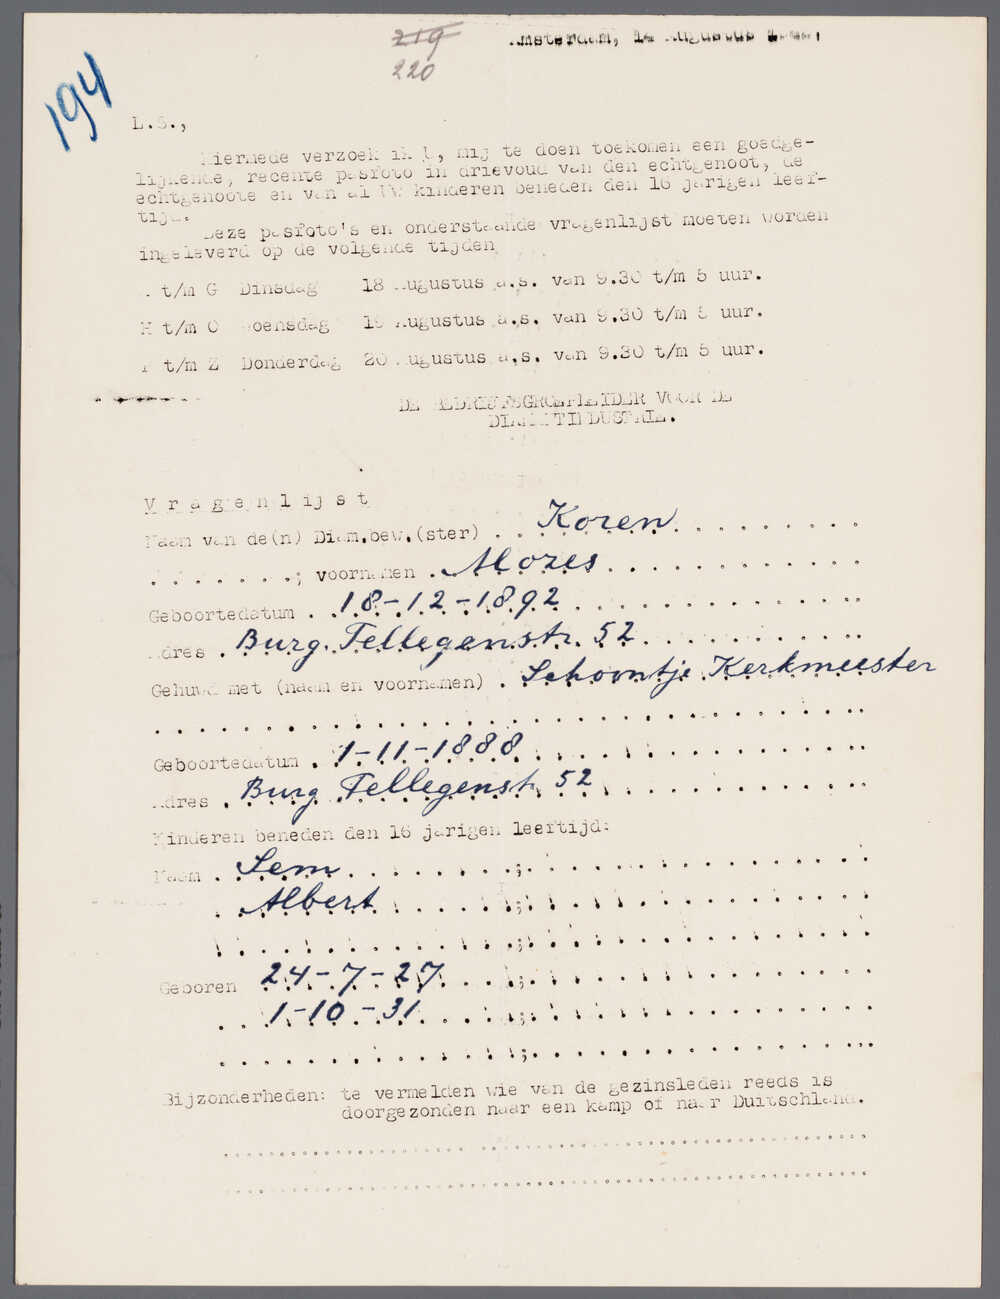 219
220
Amsterdam, 14 Augustus
194
L.S.,
Hiermede verzoek ik U, mij te doen toekomen een goedge-
lijkende, recente pasfoto in drievoud van den echtgenoot, de
echtgenoote en van al Uw kinderen beneden den 16 jarigen leef-
tijd.
Deze pasfoto's en onderstaande vragenlijst moeten worden
ingeleverd op de volgende tijden
t/m G Dinsdag 18 Augustus a.s. van 9.30 t/m 5 uur.
H t/m O Woensdag 19 Augustus a.s. van 9.30 t/m 5 uur.
P t/m Z Donderdag 20 Augustus a.s. van 9.30 t/m 5 uur.
DE BEDRIJFSGROEPLEIDER VOOR DE
DIAMANTINDUSTRIE.
Vragenlijst
Naam van de(n) Diam.bew.(ster) . . Koren . . . . . . . . .
. . . . . . .; voornamen . Mozes . . . . . . . . . . . .
Geboortedatum . 18-12-1892 . . . . . . . . . . . .
Adres . Burg. Tellegenstr. 52 . . . . . . . . .
Gehuwd met (naam en voornamen) . Schoontje Kerkmeester
. . . . . . . . . . . . . . . . . . . . . . . . . . . . . .
Geboortedatum . 1-11-1888 . . . . . . . . . . . . .
Adres . Burg Tellegenstr 52 . . . . . . . . . . .
Kinderen beneden den 16 jarigen leeftijd:
Naam . Sem . . . . . . . . ; . . . . . . . . . . . . . .
. Albert . . . . . . ; . . . . . . . . . . . . . .
. . . . . . . . . . . . . ; . . . . . . . . . . . . . .
Geboren 24-7-27 . . . ; . . . . . . . . . . . . . .
. . 1-10-31 . . . . ; . . . . . . . . . . . . . .
. . . . . . . . . . . . . ; . . . . . . . . . . . . . . .
Bijzonderheden: te vermelden wie van de gezinsleden reeds is
doorgezonden naar een kamp of naar Duitschland.
. . . . . . . . . . . . . . . . . . . . . . . . . . . . . .
. . . . . . . . . . . . . . . . . . . . . . . . . . . . . .